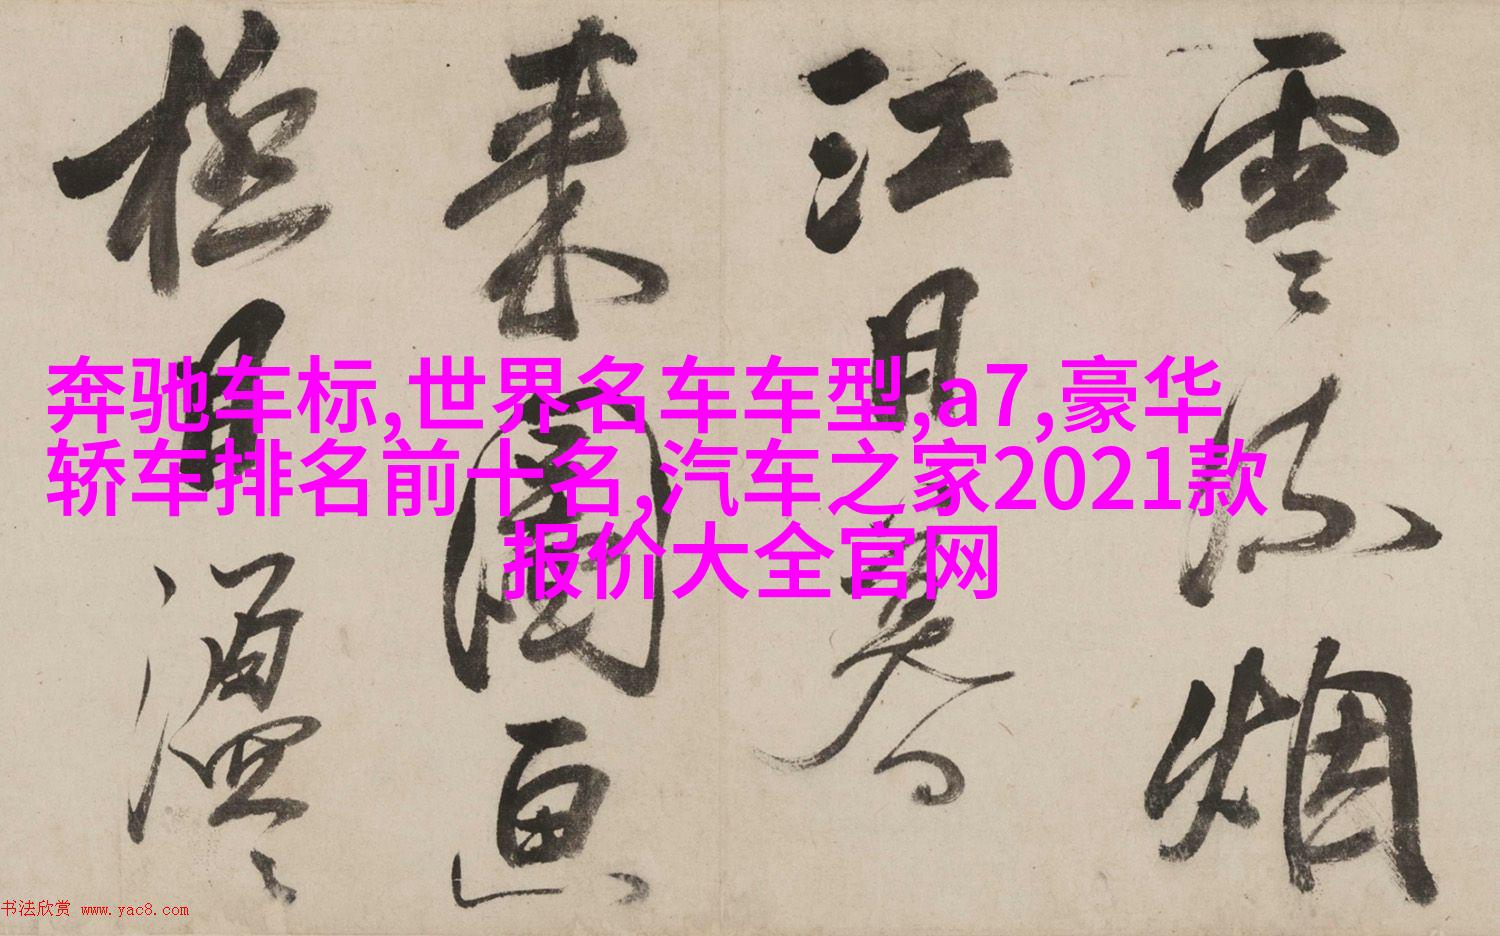 奔驰车标,世界名车车型,a7,豪华
轿车排名前十名,汽车之家2021款
报价大全官网
雲〻烟
江月
来圖画
極目
书法欣赏 www.yac8.com